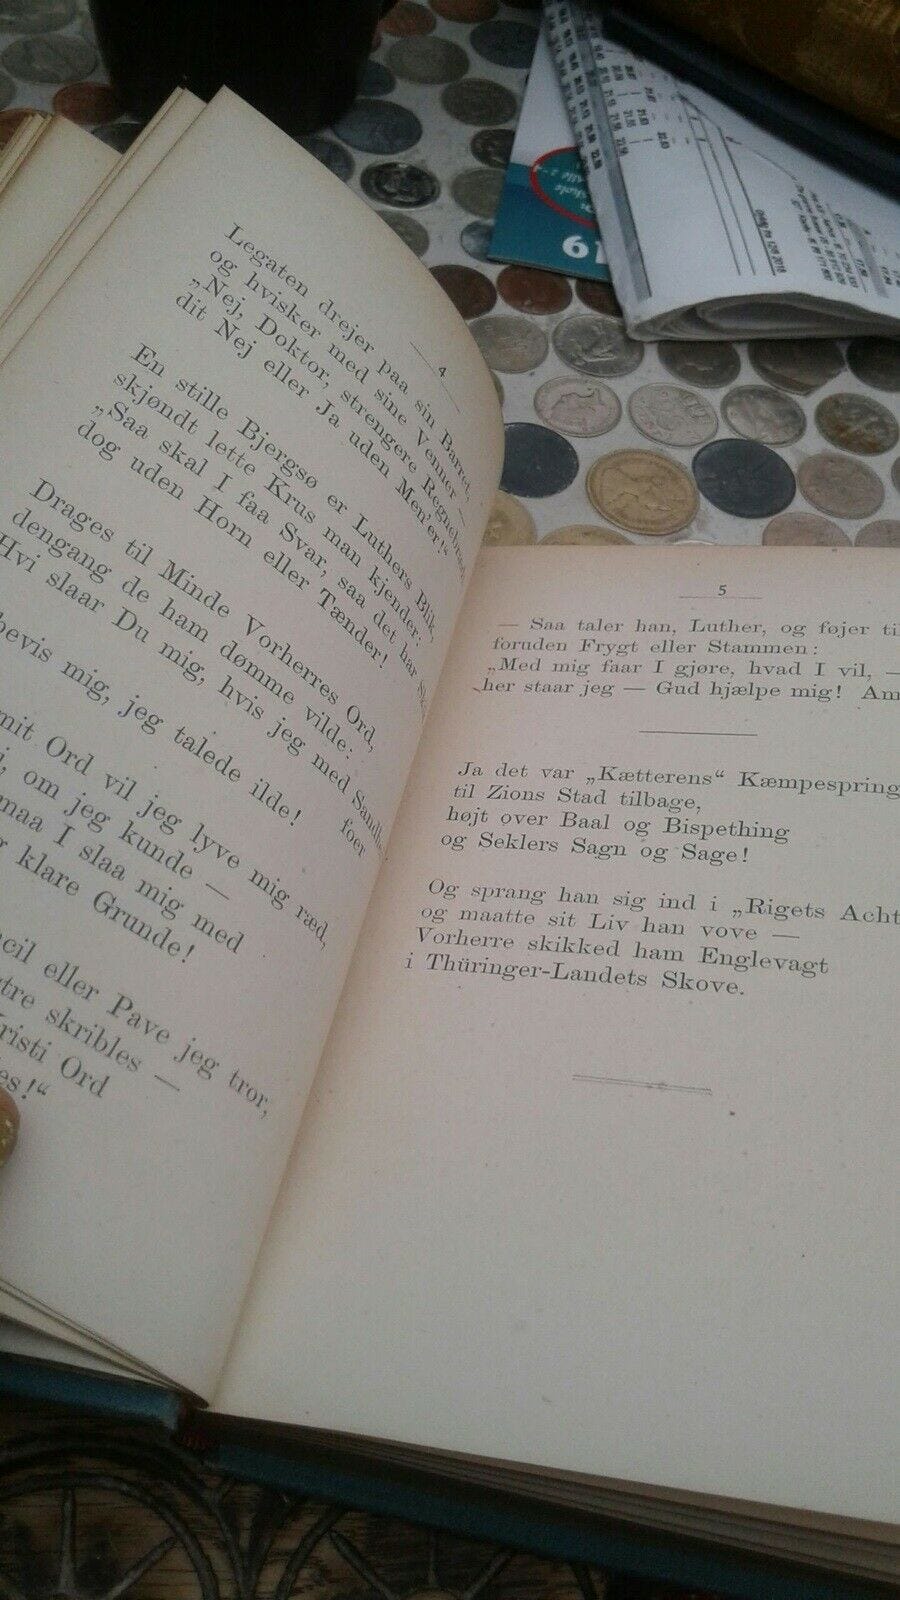 4
Legaten drejer paa sin Barret,
og hvisker med sine Venner —
„Nej, Doktor, strengere
dit Nej eller Ja uden Men'er!“
En stille Bjergsø er Luthers Blik,
skjøndt lette Krus man kjender:
„Saa skal I faa Svar, saa det har
dog uden Horn eller Tænder!
Drages til Minde Vorherres Ord,
dengang de ham dømme vilde:
Hvi slaar Du mig, hvis jeg med
foer
bevis mig, jeg talede ilde!
mit Ord vil jeg lyve mig ræd,
om jeg kunde —
maa I slaa mig med
klare Grunde!
eller Pave jeg tror,
skribles —
Kristi Ord
5
— Saa taler han, Luther, og føjer til
foruden Frygt eller Stammen:
„Med mig faar I gjøre, hvad I vil, —
her staar jeg — Gud hjælpe mig! Am
Ja det var „Kætterens“ Kæmpespring
til Zions Stad tilbage,
højt over Baal og Bispething
og Seklers Sagn og Sage!
Og sprang han sig ind i „Rigets Acht
og maatte sit Liv han vove —
Vorherre skikked ham Englevagt
i Thüringer-Landets Skove.
19